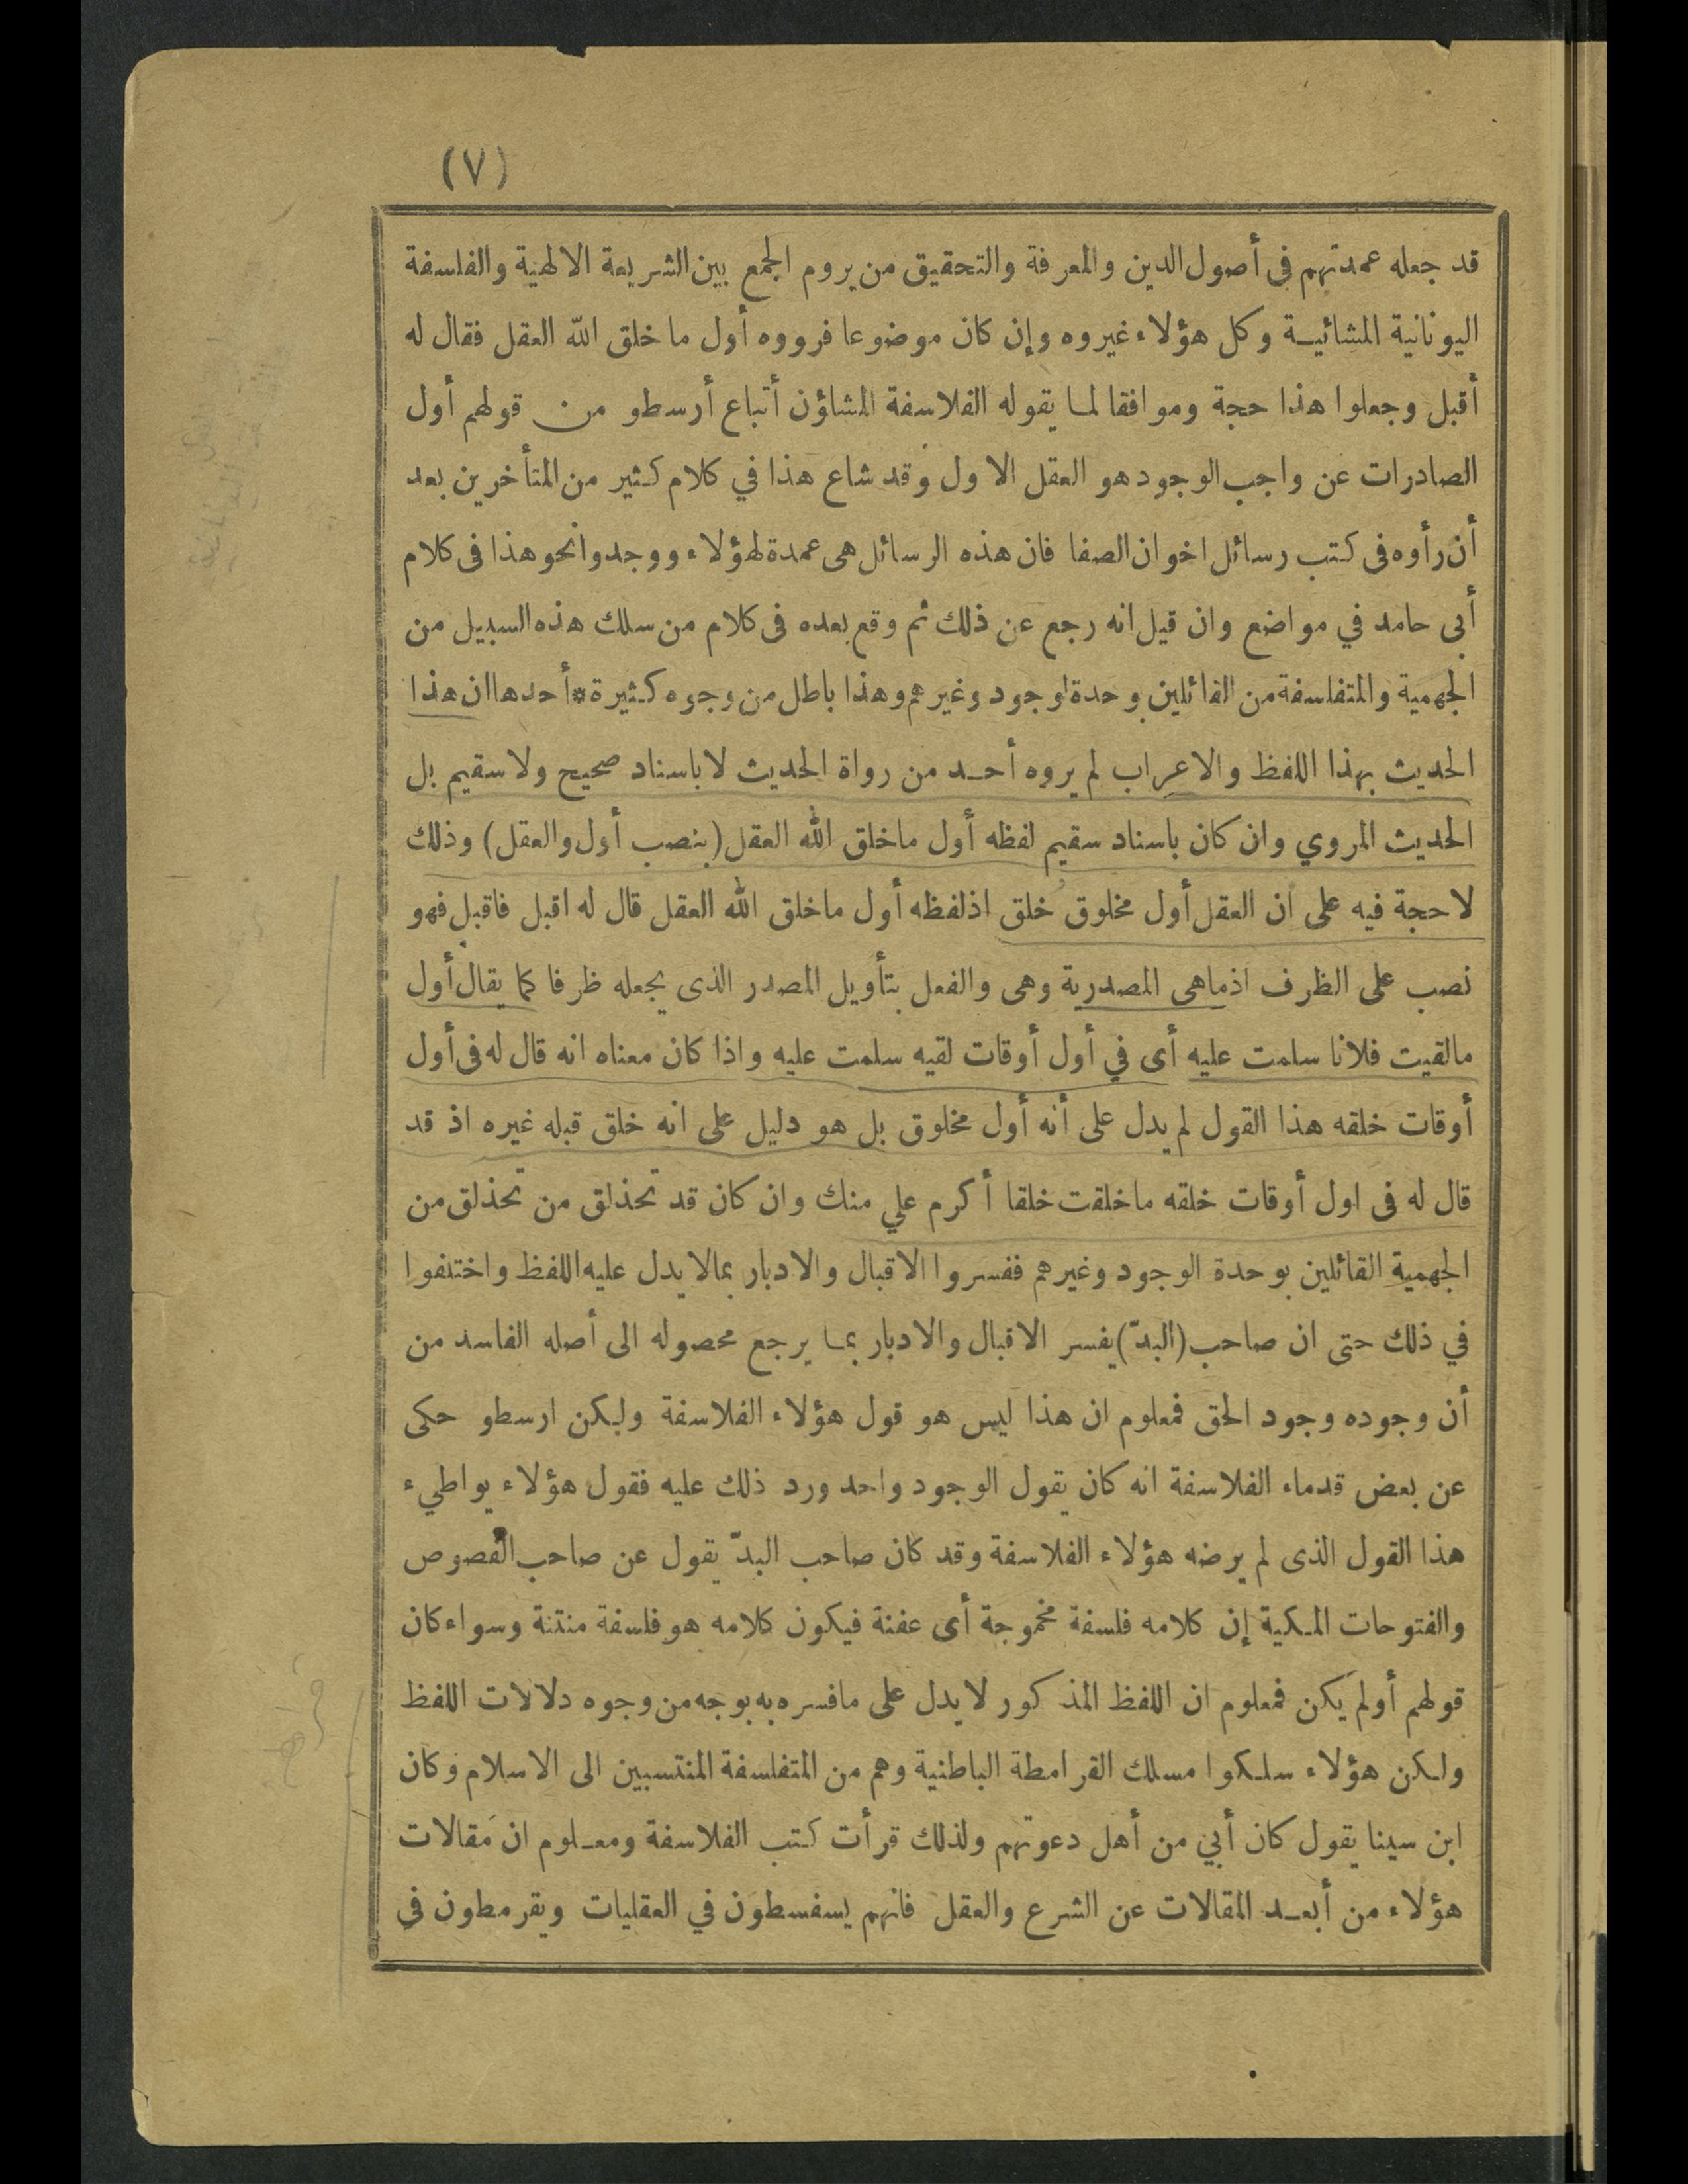 (٧)
قد جعله عمدتهم في أصول الدين والمعرفة والتحقيق من يروم الجمع بين الشريعة الالهية والفلسفة
اليونانية المشائية وكل هؤلاء غيروه وإن كان موضوعا فرووه أول ما خلق الله العقل فقال له
أقبل وجعلوا هذا حجة وموافقا لما يقوله الفلاسفة المشاؤن أتباع أرسطو من قولهم أول
الصادرات عن واجب الوجود هو العقل الاول وقد شاع هذا في كلام كثير من المتأخرين بعد
أن رأوه فى كتب رسائل اخوان الصفا فان هذه الرسائل هى عمدة لهؤلاء ووجدوا نحو هذا فى كلام
أبى حامد في مواضع وان قيل انه رجع عن ذلك ثم وقع بعده فى كلام من سلك هذه السبيل من
الجهمية والمتفلسفة من القائلين بوحدة لوجود وغيرهم وهذا باطل من وجوه كثيرة * أحدها ان هذا
الحديث بهذا اللفظ والاعراب لم يروه أحد من رواة الحديث لا باسناد صحيح ولا سقيم بل
الحديث المروي وان كان باسناد سقيم لفظه أول ما خلق الله العقل (بنصب أول والعقل) وذلك
لا حجة فيه على ان العقل أول مخلوق خلق اذ لفظه أول ما خلق الله العقل قال له اقبل فاقبل فهو
نصب على الظرف اذ ما هى المصدرية وهى والفعل بتأويل المصدر الذى يجعله ظرفا كما يقال أول
ما لقيت فلانا سلمت عليه أى في أول أوقات لقيه سلمت عليه واذا كان معناه انه قال له فى أول
أوقات خلقه هذا القول لم يدل على أنه أول مخلوق بل هو دليل على انه خلق قبله غيره اذ قد
قال له فى اول أوقات خلقه ما خلقت خلقا أكرم علي منك وان كان قد تحذلق من تحذلق من
الجهمية القائلين بوحدة الوجود وغيرهم ففسروا الاقبال والادبار بما لا يدل عليه اللفظ واختلفوا
في ذلك حتى ان صاحب (البدّ) يفسر الاقبال والادبار بما يرجع محصوله الى أصله الفاسد من
أن وجوده وجود الحق فمعلوم ان هذا ليس هو قول هؤلاء الفلاسفة ولكن ارسطو حكى
عن بعض قدماء الفلاسفة انه كان يقول الوجود واحد ورد ذلك عليه فقول هؤلاء يواطيء
هذا القول الذى لم يرضه هؤلاء الفلاسفة وقد كان صاحب البدّ يقول عن صاحب الفصوص
والفتوحات المكية إن كلامه فلسفة مخموجة أى عفنة فيكون كلامه هو فلسفة منتنة وسواء كان
قولهم أولم يكن فمعلوم ان اللفظ المذكور لا يدل على ما فسره به بوجه من وجوه دلالات اللفظ
ولكن هؤلاء سلكوا مسلك القرامطة الباطنية وهم من المتفلسفة المنتسبين الى الاسلام وكان
ابن سينا يقول كان أبي من أهل دعوتهم ولذلك قرأت كتب الفلاسفة ومعلوم ان مقالات
هؤلاء من أبعد المقالات عن الشرع والعقل فانهم يسفسطون في العقليات ويقرمطون في